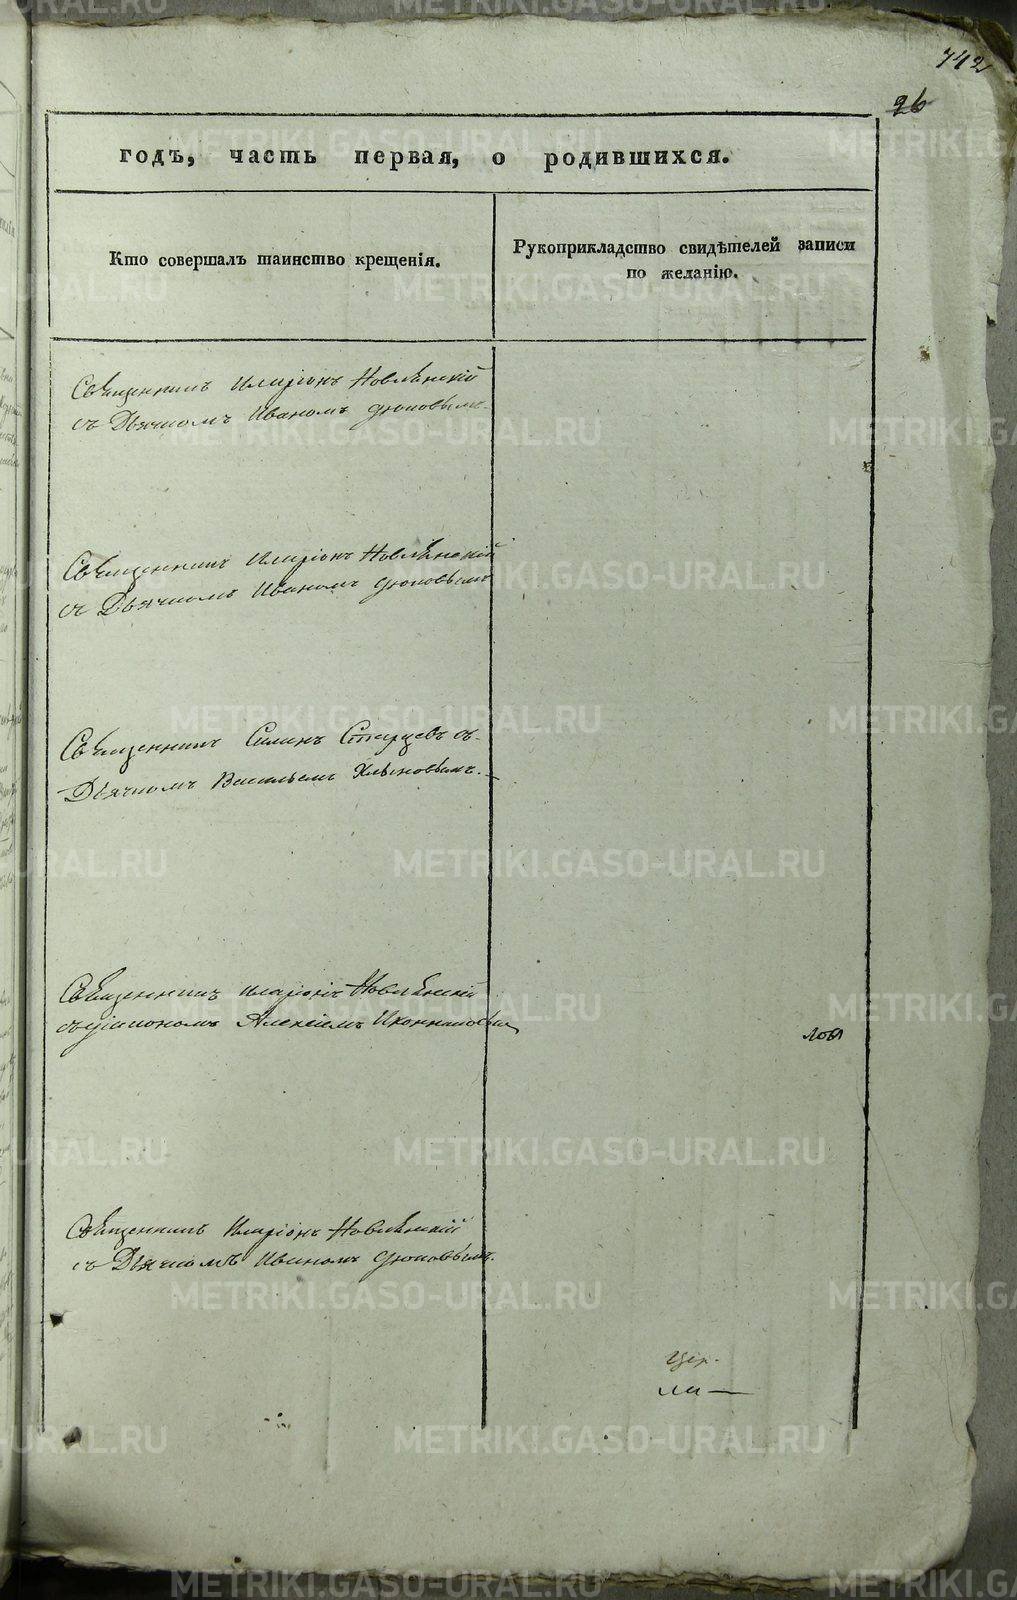 742
26
годъ, часть первая, о родившихся.
Кто совершалъ таинство крещенія.
Рукоприкладство свидѣтелей записи
по желанію.
Священникъ Иларіонъ Новлянскій
съ Дьячкомъ Иваномъ
Священникъ Иларіонъ Новлянскій
съ Дьячкомъ Иваномъ
Священникъ Симонъ Старцевъ съ
Дьячкомъ Васильемъ Хлыновымъ.
Священникъ Иларіонъ Новлянскій
Алексіемъ Иконниковымъ
Священникъ Иларіонъ Новлянскій
съ Дьячкомъ Иваномъ
METRIKI.GASO-URAL.RU